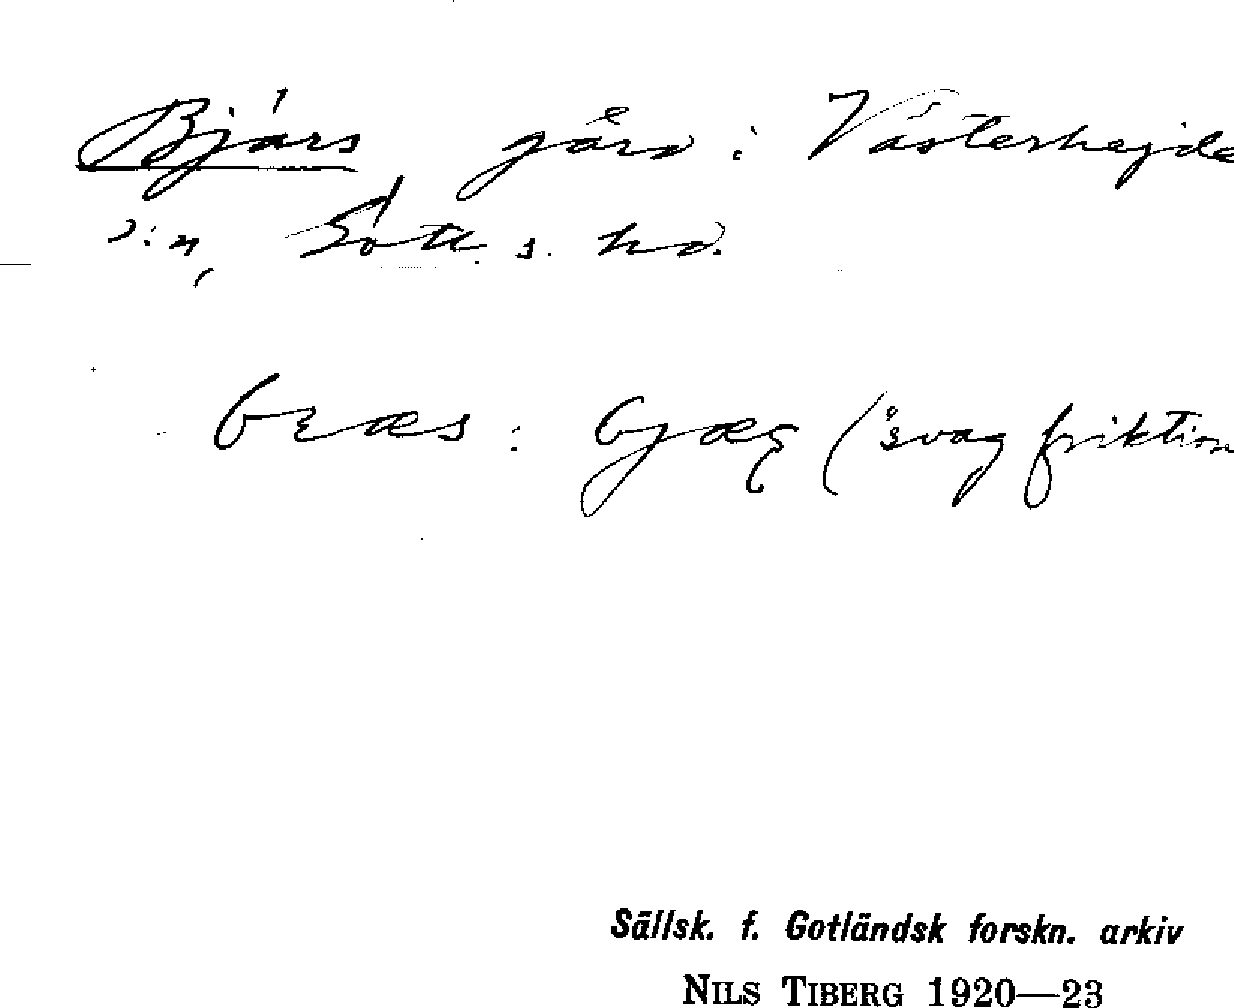 Bjärs gård i Västerhejde
s:n, Gotl. s. hd.
: bjæ (svag friktion
Sällsk. f. Gotländsk forskn. arkiv
NILS TIBERG 1920—23